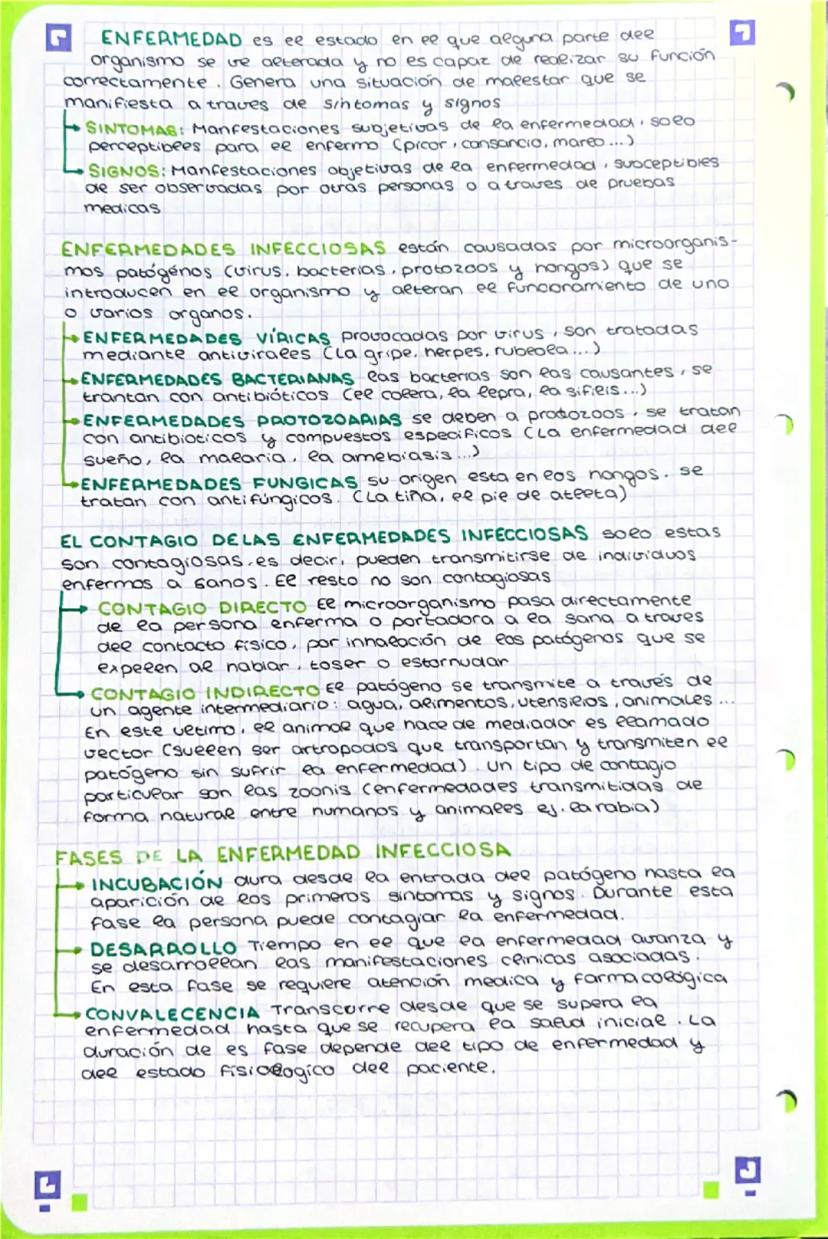 ENFERMEDAD es el estado en el que alguna parte del
organismo se ve alterada y no es capaz de realizar su función
correctamente. Genera una situación de malestar que se
manifiesta a traves de síntomas y signos
SINTOMAS: Manfestaciones subjetivas de la enfermedad, solo
perceptibles para el enfermo (picor, cansancio, mareo...)
SIGNOS: Manfestaciones objetivas de la enfermedad, susceptibles
de ser observadas por otras personas o a traves de pruebas
medicas
ENFERMEDADES INFECCIOSAS están causadas por microorganis-
mos patógénos (virus, bacterias, protozoos y hongos) que se
introducen en el organismo y alteran el funcionamiento de uno
o varios organos.
ENFERMEDADES VÍRICAS provocadas por virus, son tratadas
mediante antivirales (La gripe, herpes, rubeola...)
ENFERMEDADES BACTERIANAS las bacterias son las causantes, se
trantan con antibióticos (el colera, la lepra, la sifilis...)
ENFERMEDADES PROTOZOARIAS se deben a protozoos, se tratan
con antibioticos y compuestos especificos (La enfermedad del
sueño, la malaria, la amebiasis...)
ENFERMEDADES FUNGICAS su origen esta en los hongos. se
tratan con antifúngicos. (La tiña, el pie de atleta)
EL CONTAGIO DE LAS ENFERMEDADES INFECCIOSAS solo estas
son contagiosas, es decir, pueden transmitirse de individuos
enfermos a sanos. El resto no son contagiosas
CONTAGIO DIRECTO El microorganismo pasa directamente
de la persona enferma o portadora a la sana a traves
del contacto físico, por inhalación de los patógenos que se
expelen al hablar, toser o estornudar
CONTAGIO INDIRECTO El patógeno se transmite a través de
un agente intermediario: agua, alimentos, utensilios, animales...
En este ultimo, el animal que hace de mediador es llamado
vector (suelen ser artropodos que transportan y transmiten el
patógeno sin sufrir la enfermedad). Un tipo de contagio
particular son las zoonis (enfermedades transmitidas de
forma natural entre humanos y animales ej. la rabia)
FASES DE LA ENFERMEDAD INFECCIOSA
INCUBACIÓN dura desde la entrada del patógeno hasta la
aparición de los primeros síntomas y signos. Durante esta
fase la persona puede contagiar la enfermedad.
DESARROLLO Tiempo en el que la enfermedad avanza y
se desarrollan las manifestaciones clínicas asociadas.
En esta fase se requiere atención medica y farmacológica
CONVALECENCIA Transcurre desde que se supera la
enfermedad hasta que se recupera la salud inicial. La
duración de es fase depende del tipo de enfermedad y
del estado fisiologico del paciente.